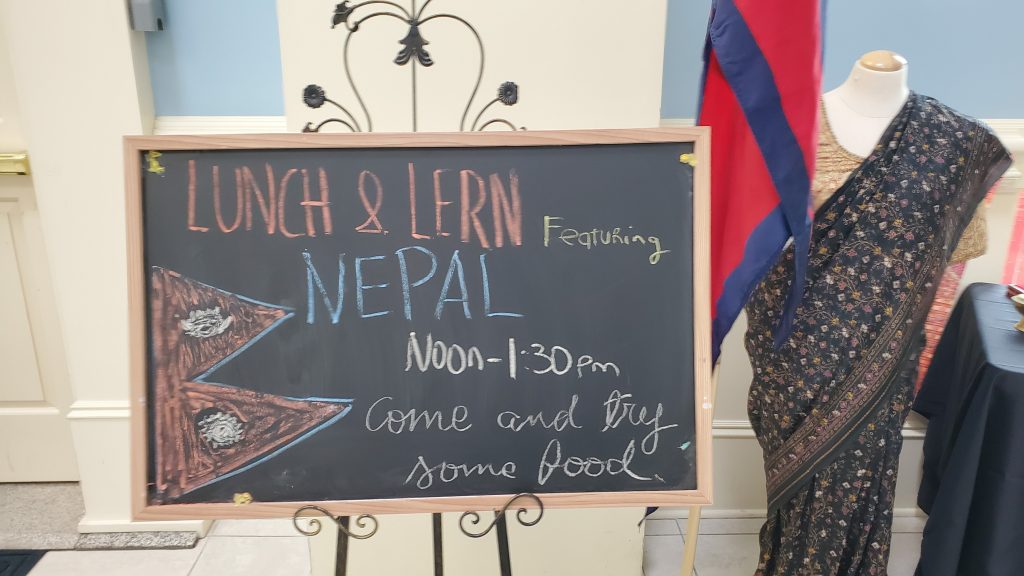 LUNCH & LERN Featuring
NEPAL
Noon-1:30pm
Come and try
some food.